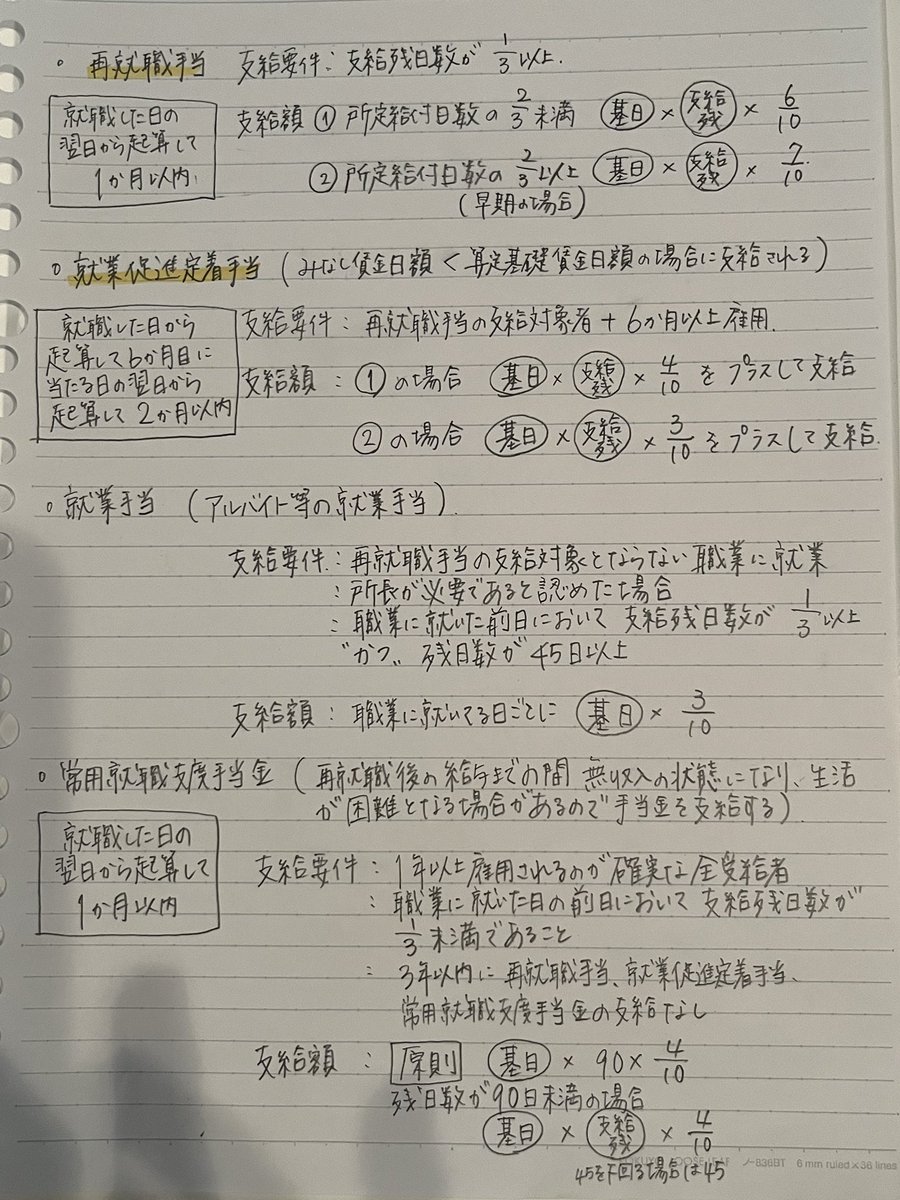 ○ 再就職手当 支給要件: 支給残日数が 1/3 以上.
就職した日の
翌日から起算して
1か月以内.
支給額 ① 所定給付日数の 2/3 未満 基日 × 支給残 × 6/10
② 所定給付日数の 2/3 以上 基日 × 支給残 × 7/10.
(早期の場合)
○ 就業促進定着手当 (みなし賃金日額 < 算定基礎賃金日額の場合に支給される)
就職した日から
起算して6か月目に
当たる日の翌日から
起算して 2か月以内
支給要件: 再就職手当の支給対象者 + 6か月以上雇用.
支給額: ① の場合 基日 × 支給残 × 4/10 を プラスして支給
② の場合 基日 × 支給残 × 3/10 を プラスして支給.
○ 就業手当 (アルバイト等の就業手当).
支給要件: 再就職手当の支給対象とならない職業に就業
: 所長が必要であると認めた場合
: 職業に就いた前日において 支給残日数が 1/3 以上
"かつ" 残日数が 45日以上
支給額: 職業に就いてる日ごとに 基日 × 3/10
○ 常用就職支度手当金 (再就職後の給与までの間 無収入の状態になり、生活
が困難となる場合があるので手当金を支給する)
就職した日の
翌日から起算して
1か月以内
支給要件: 1年以上雇用されるのが確実な全受給者
: 職業に就いた日の前日において 支給残日数が
1/3 未満であること
: 3年以内に再就職手当、就業促進定着手当、
常用就職支度手当金の支給なし
支給額: 原則 基日 × 90 × 4/10
残日数が90日未満の場合
基日 × 支給残 × 4/10
45を下回る場合は45
LOOSE-LEAF ノ-836BT 6 mm ruled×36 lines